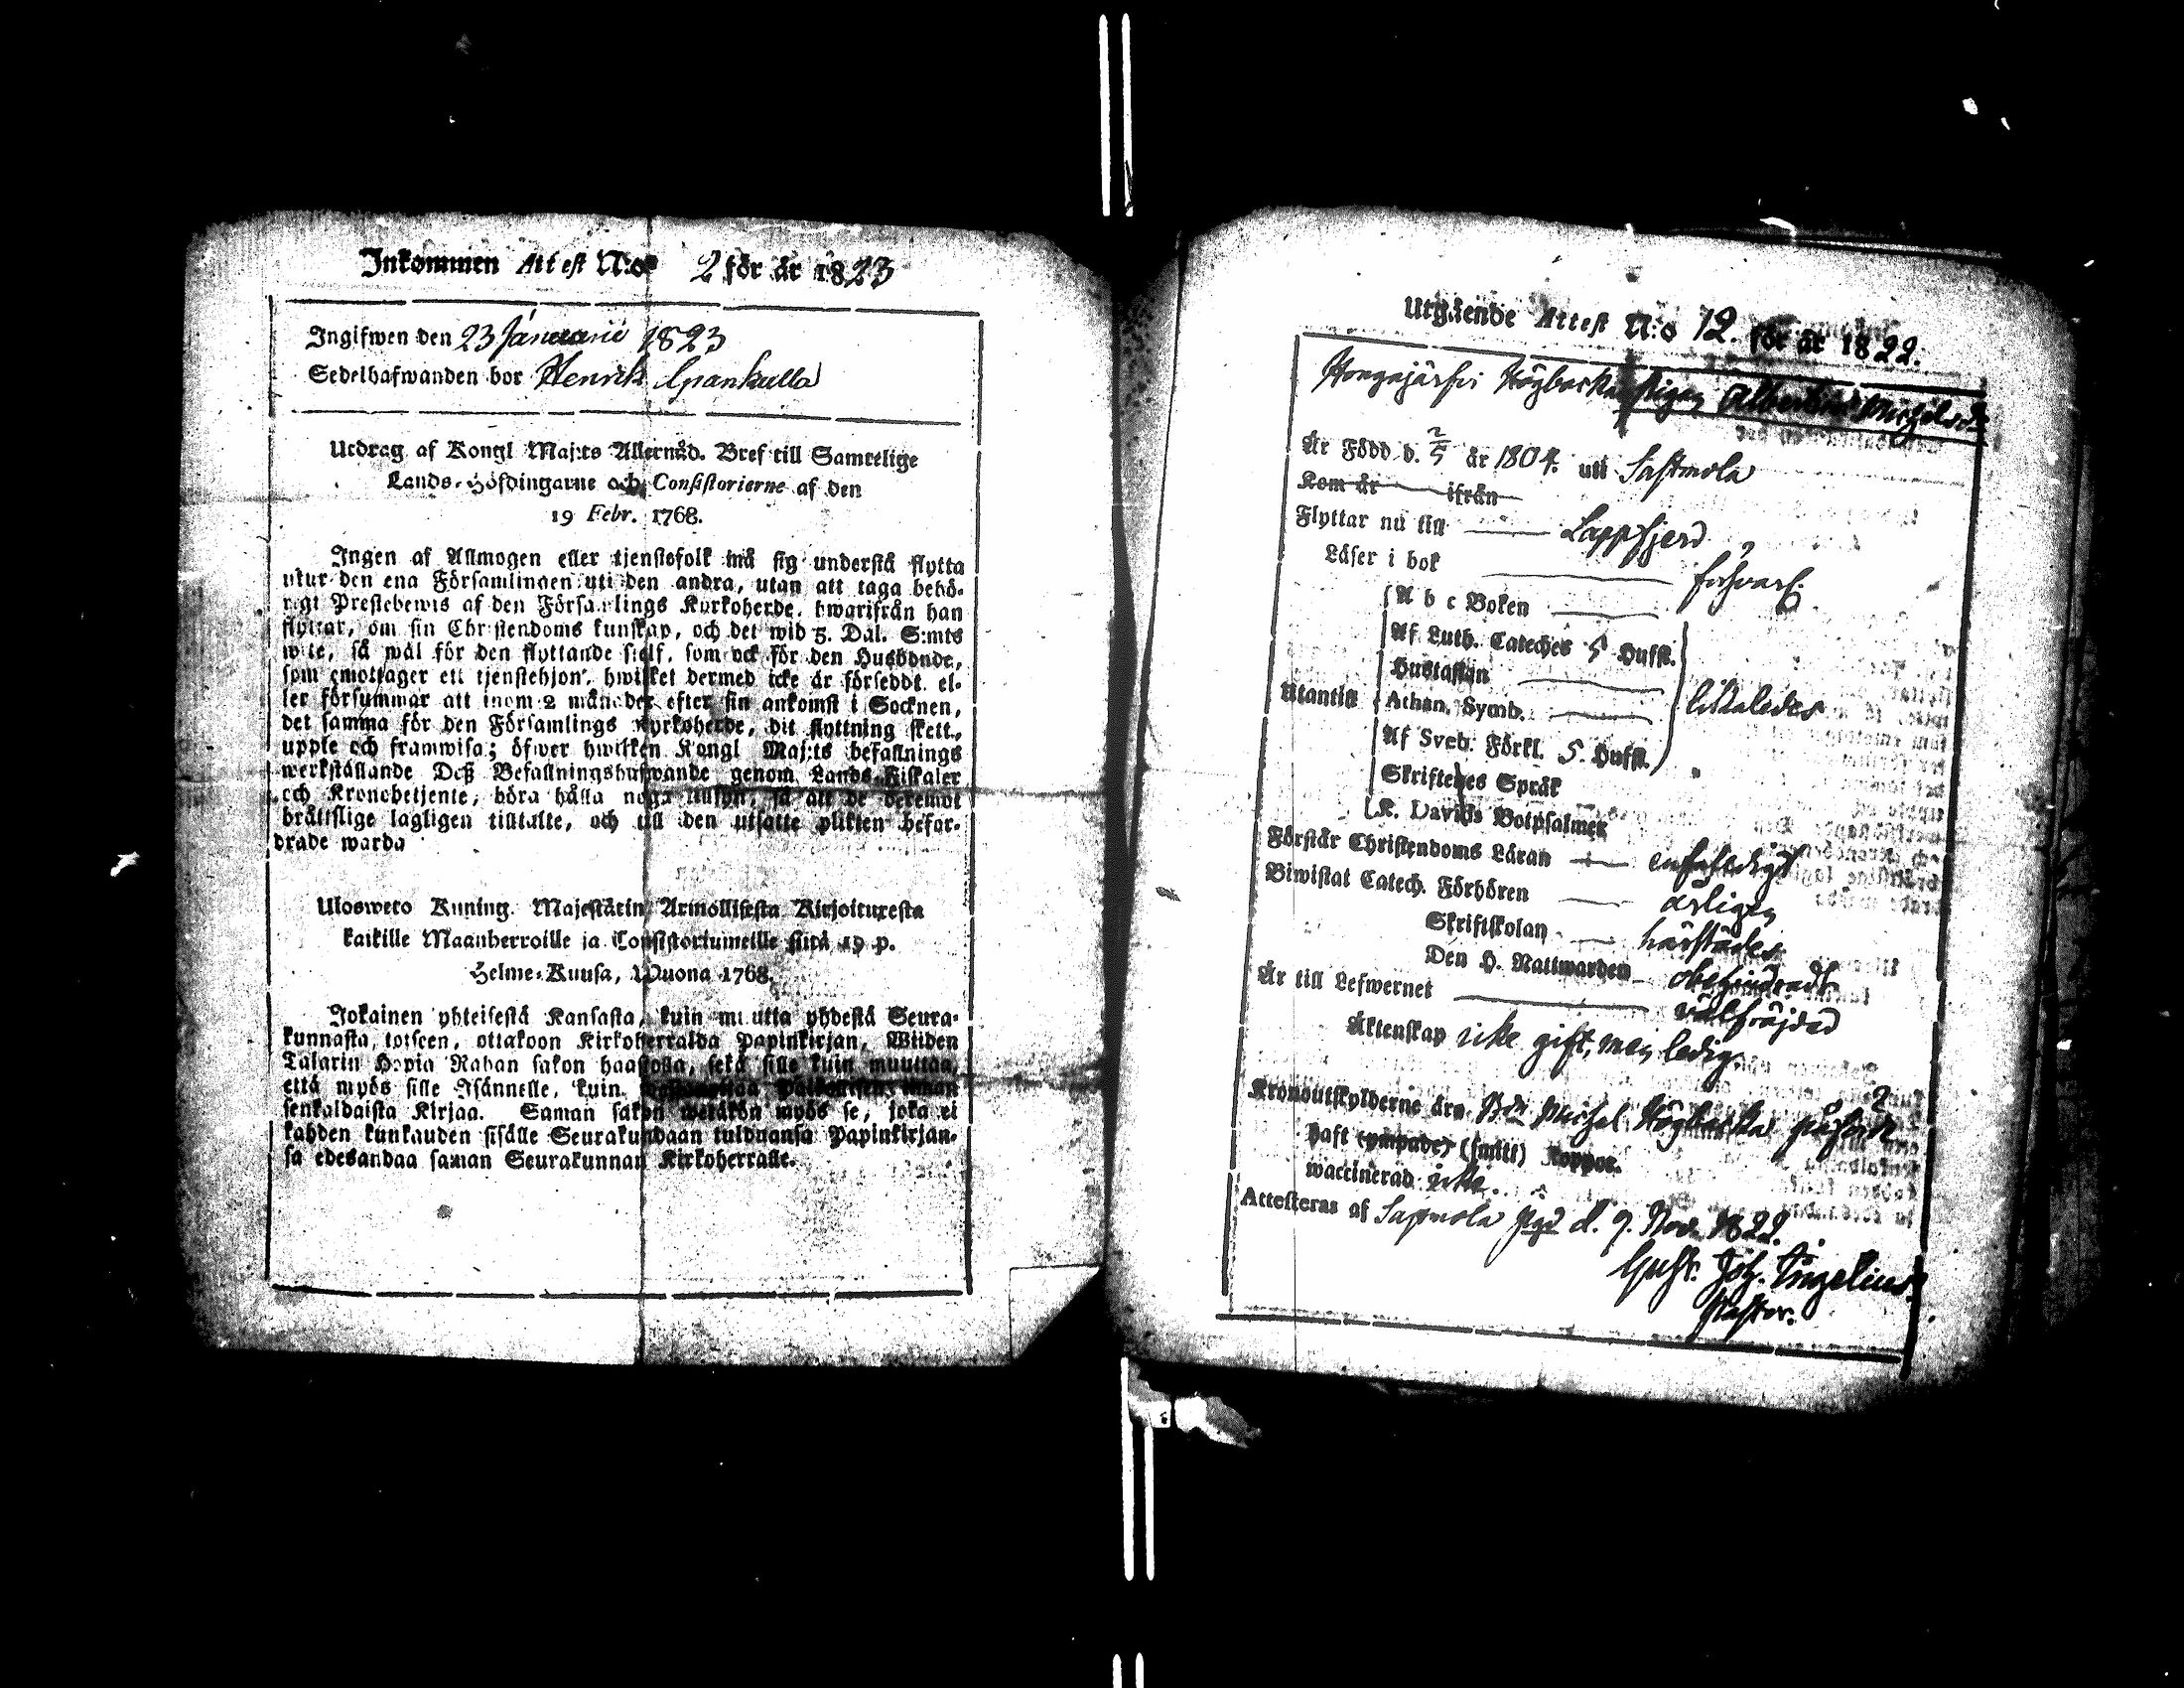 Inkommen Attest N:o 2 för år 1823
Ingifwen den 23 Januarii 1823
Sedelhafwanden bor Henrik Grankulla
Utdrag af Kongl Maj:ts Allernåd. Bref till Samtelige
Lands-Höfdingarne och Consistorierne af den
19 Febr. 1768.
Ingen af Allmogen eller tjenstefolk må sig understå flytta
utur den ena Församlingen uti den andra, utan att taga behö-
rigt Prestebewis af den Församlings Kyrkoherde, hwarifrån han
flyttar, om sin Christendoms kunskap, och det wid 5. Dal. S:mts
wite, så wäl för den flyttande sielf, som ock för den Husbonde,
som emottager ett tjenstehjon, hwilket dermed icke är försedt. el-
ler försummar att inom 2 månader efter sin ankomst i Socknen,
det samma för den Församlings Kyrkoherde, dit flyttning skett,
uppte och framwisa; öfwer hwilken Kongl Maj:ts befallnings
werkställande Deß Befallningshafwande genom Lands-Fiskaler
och Kronobetjente, böra hålla noga tillsyn, så att de deremot
bråttslige lagligen tilltalte, och till den utsatte plikten befor-
drade warda
Ulosweto Kuning. Majestätin Armollisesta Kirjoituxesta
kaikille Maanherroille ja Consistoriumeille siitä 19 p.
Helme-Kuusa, Wuona 1768.
Jokainen yhteisestä Kansasta, kuin muutta yhdestä Seura-
kunnasta, toiseen, ottakoon Kirkoherralda Papinkirjan, Wiiden
Talarin Hopia Rahan sakon haastolla, sekä sille kuin muuttaa,
että myös sille Isännelle, kuin ilman
senkaldaista Kirjaa. Saman sakon wetäkön myös se, joka ei
kahden kunkauden sisälle Seurakundaan tulduansa Papinkirjan-
sa edesandaa saman Seurakunnan Kirkoherralle.
Utgående Attest N:o 12. för år 1822.
Kongajärfvi Högbacka Pigan Albertina Michelsdr
Är Född d. 2/5 år 1804. uti Sastmola
Kom år ifrån
Flyttar nu till Lappfjerd
Läser i bok försvarl.
A b c Boken
Af Luth. Cateches 5 Hufst.
Hustaflan
Utantill Athan. Symb. likaledes
Af Sveb. Förkl. 5. Hufst.
Skriftenes Språk
K. Davids Botpsalmer
Förstår Christendoms Läran enfaldigt
Biwistat Catech. Förhören årligen
Skriftskolan härstädes
Den H. Nattwarden obehindradt
Är till Lefwernet välfräjdad
Äktenskap icke gift, men ledig.
Kronoutskylderne äro Bdn Michel Högbacka påförde
haft ympade) (smitt) Koppor.
waccinerad icke.
Attesteras af Sastmola Pgd d. 9. Nov. 1822.
Gust. Joh. Ingelius.
Pastor.